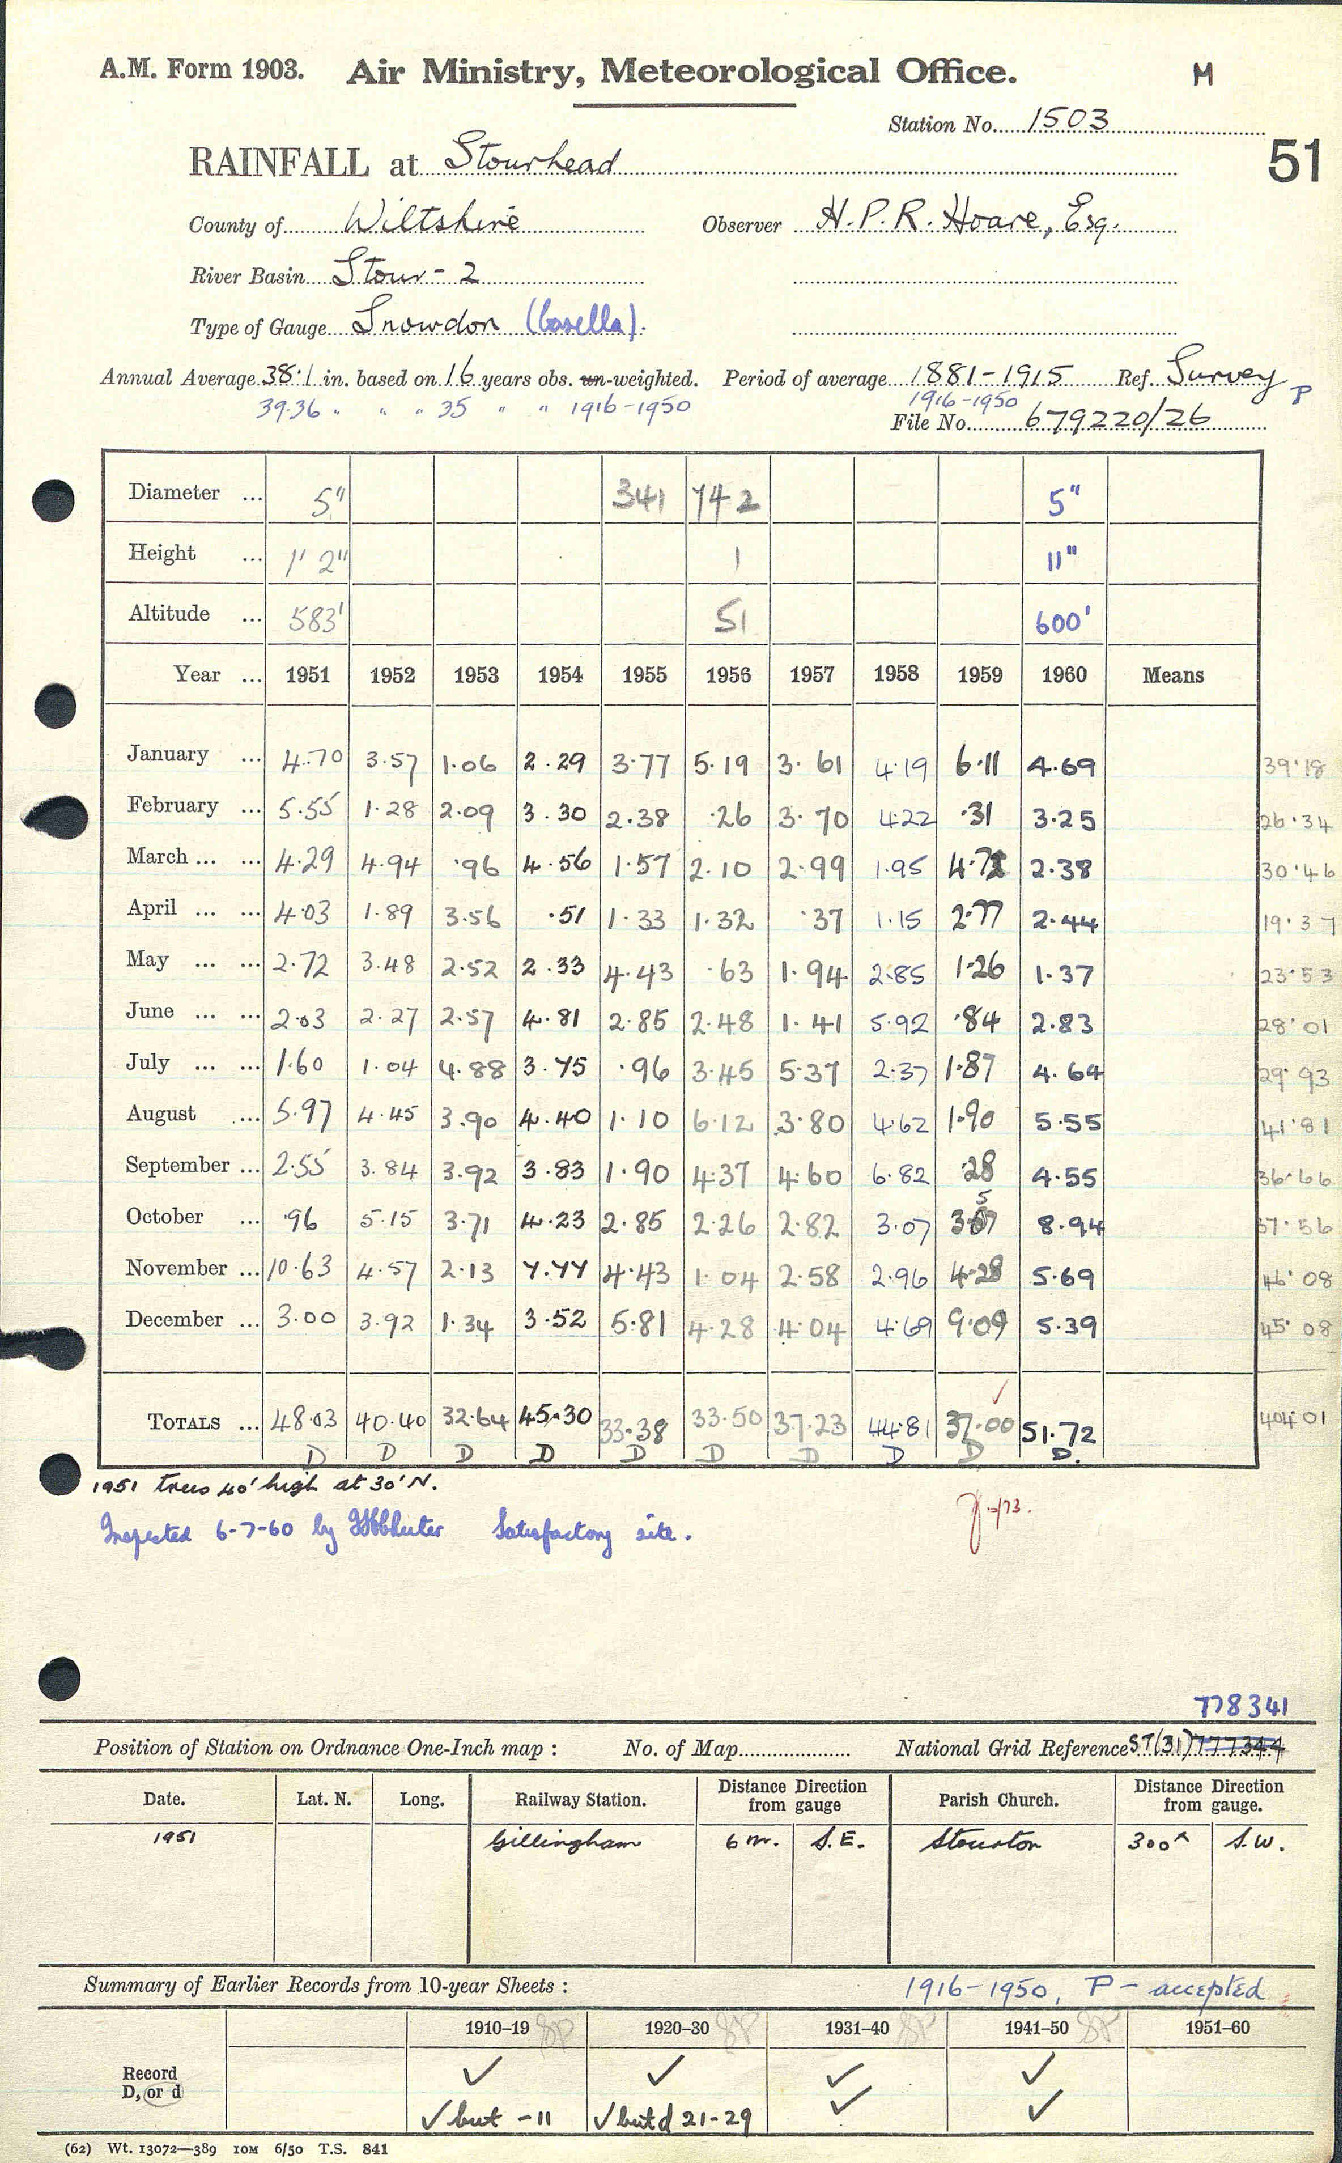 A.M. Form 1903. Air Ministry, Meteorological Office. M
Station No. 1503
51
RAINFALL at Stourhead
County of Wiltshire Observer H.P.R. Hoare, Esq.
River Basin Stour - 2
Type of Gauge Snowdon (Casella).
Annual Average 38.1 in. based on 16 years obs. un-weighted. Period of average 1881-1915 Ref. Survey P
39.36 " " " 35 " " 1916-1950 1916-1950
File No. 679220/26
Diameter ... 5" 341 742 5"
Height ... 1' 2" 1 11"
Altitude ... 583' 51 600'
Year ... 1951 1952 1953 1954 1955 1956 1957 1958 1959 1960 Means
January ... 4.70 3.57 1.06 2.29 3.77 5.19 3.61 4.19 6.11 4.69 39.18
February ... 5.55 1.28 2.09 3.30 2.38 .26 3.70 4.22 .31 3.25 26.34
March ... ... 4.29 4.94 .96 4.56 1.57 2.10 2.99 1.95 4.72 2.38 30.46
April ... ... 4.03 1.89 3.56 .51 1.33 1.32 .37 1.15 2.77 2.44 19.37
May ... ... 2.72 3.48 2.52 2.33 4.43 .63 1.94 2.85 1.26 1.37 23.53
June ... ... 2.03 2.27 2.57 4.81 2.85 2.48 1.41 5.92 .84 2.83 28.01
July ... ... 1.60 1.04 4.88 3.75 .96 3.45 5.37 2.37 1.87 4.64 29.93
August ... 5.97 4.45 3.90 4.40 1.10 6.12 3.80 4.62 1.90 5.55 41.81
September ... 2.55 3.84 3.92 3.83 1.90 4.37 4.60 6.82 .28 4.55 36.66
October ... .96 5.15 3.71 4.23 2.85 2.26 2.82 3.07 3.57 8.94 37.56
November ... 10.63 4.57 2.13 7.77 4.43 1.04 2.58 2.96 4.28 5.69 46.08
December ... 3.00 3.92 1.34 3.52 5.81 4.28 4.04 4.69 9.09 5.39 45.08
TOTALS ... 48.03 40.40 32.64 45.30 33.38 33.50 37.23 44.81 37.00 51.72 404.01
D D D D D D D D D D.
1951 trees 40' high at 30' N.
Inspected 6-7-60 by Satisfactory site.
778341
Position of Station on Ordnance One-Inch map : No. of Map National Grid Reference ST(31) 777344
Date. Lat. N. Long. Railway Station. Distance from gauge Direction Parish Church. Distance from gauge. Direction
1951 Gillingham 6 m. S.E. Stourton 300x S.W.
Summary of Earlier Records from 10-year Sheets : 1916-1950, P - accepted
1910-19 SP 1920-30 SP 1931-40 SP 1941-50 SP 1951-60
Record ✓ ✓ ✓ ✓
D, or d ✓ but -11 ✓ but d 21-29 ✓ ✓
(62) Wt. 13072—389 10M 6/50 T.S. 841